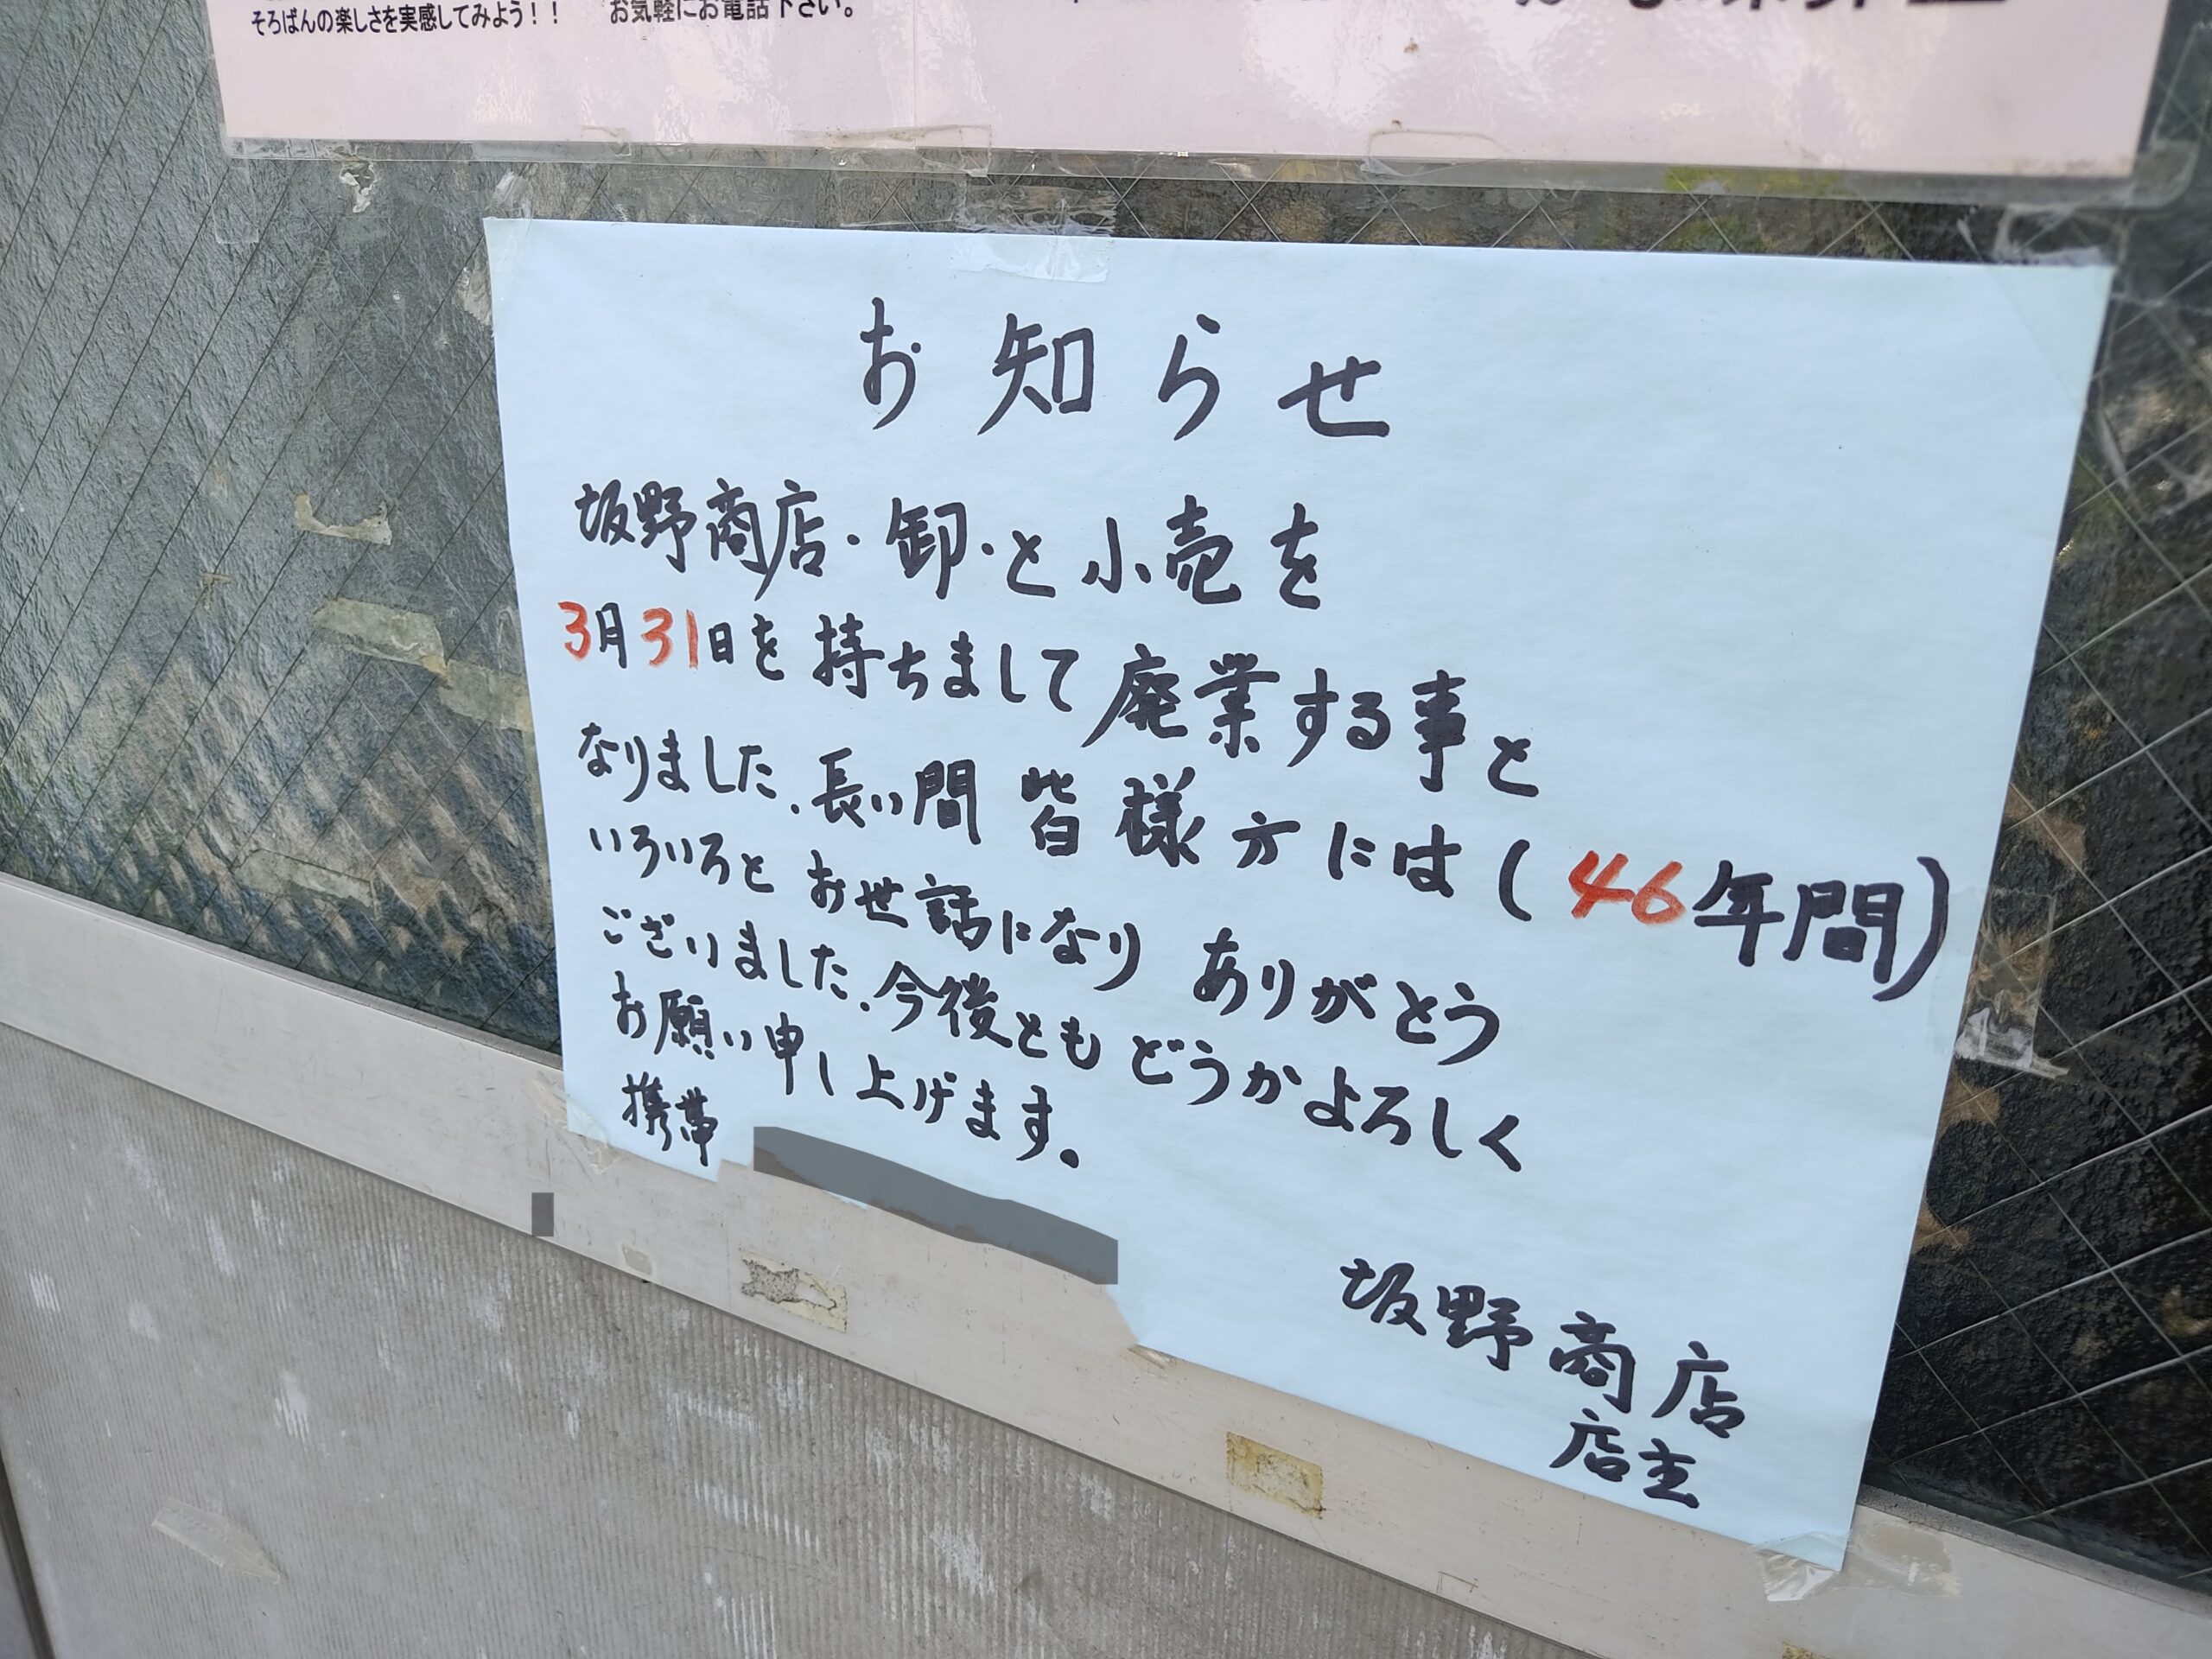 そろばんの楽しさを実感してみよう！！
お気軽にお電話下さい。
お知らせ
坂野商店・卸・と小売を
3月31日を持ちまして廃業する事と
なりました.長い間 皆様方には(46年間)
いろいろとお世話になり ありがとう
ございました.今後ともどうかよろしく
お願い申し上げます。
携帯
坂野商店
店主